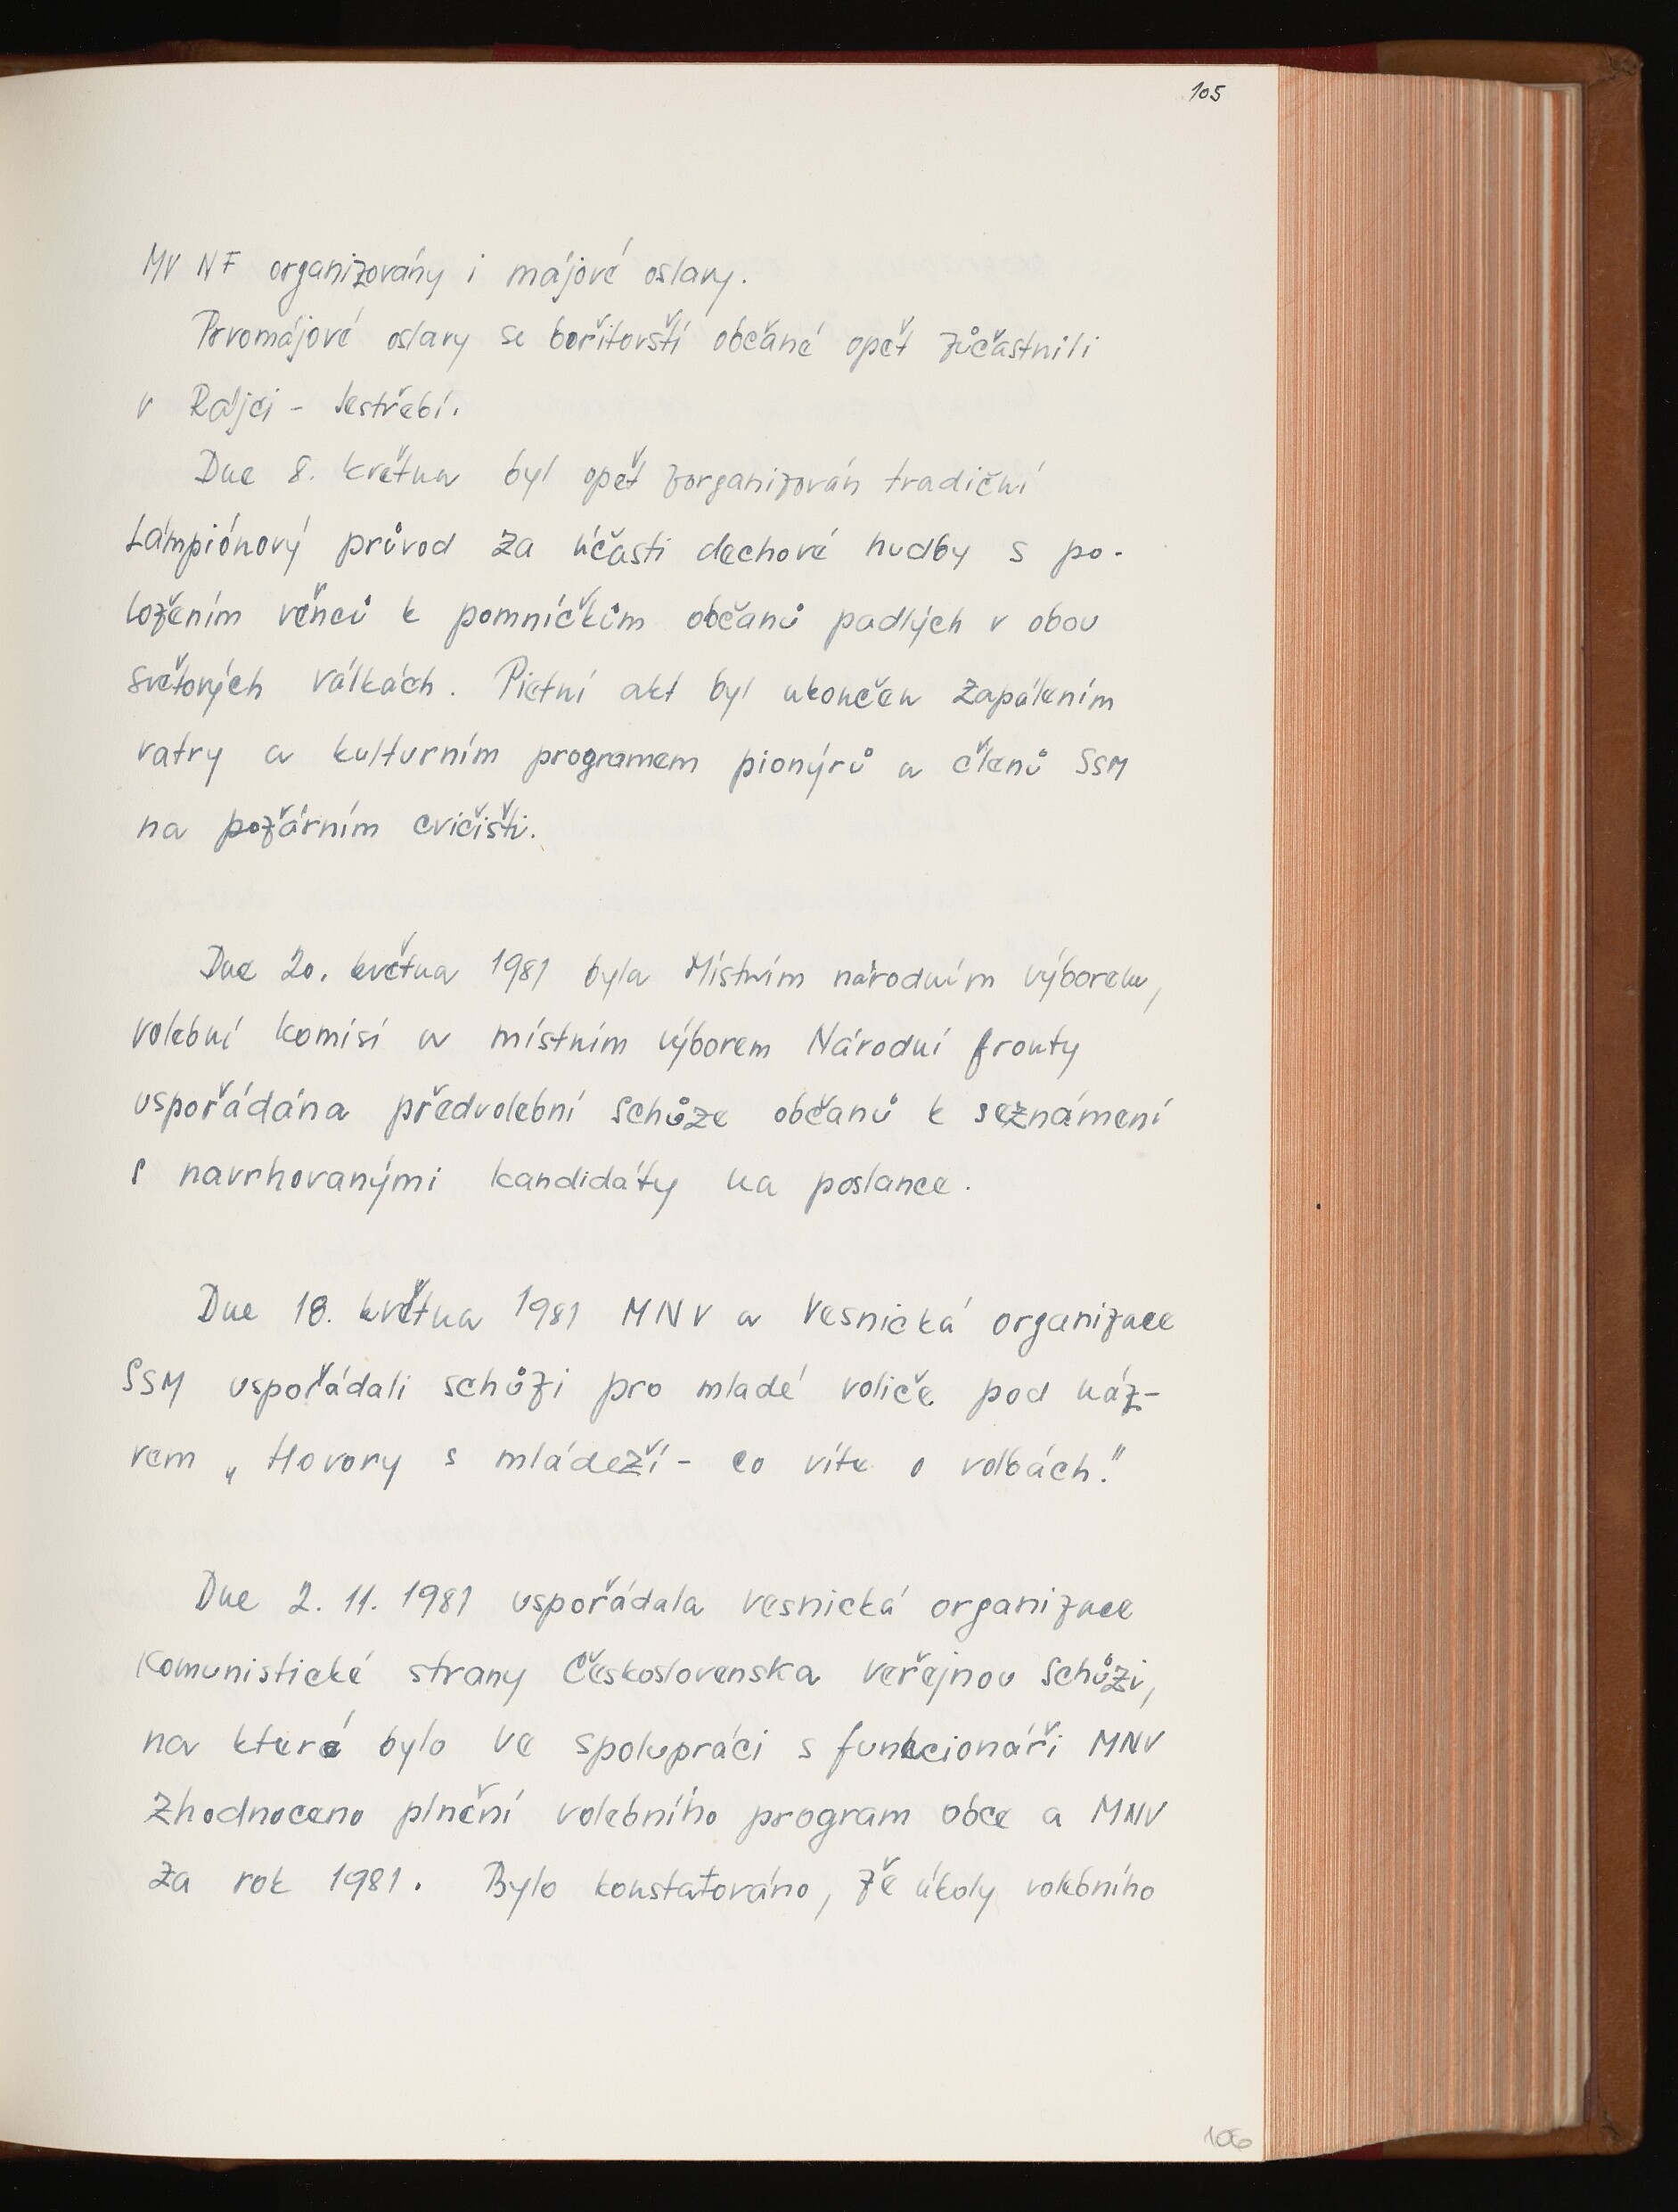 105
MV NF organizovány i májové oslavy.
Prvomájové oslavy se bořitovští občané opět zůčastnili
v Rájci - Jestřebí.
Dne 8. května byl opět zorganizován tradiční
Lampiónový průvod za účasti dechové hudby s po-
ložením věnců k pomníčkům občanů padlých v obou
světových válkách. Pietní akt byl ukončen zapálením
vatry a kulturním programem pionýrů a členů SSM
na požárním cvičišti.
Dne 20. května 1981 byla Místním národním výborem,
volební komisí a místním výborem Národní fronty
uspořádána předvolební schůze občanů k seznámení
s navrhovanými kandidáty na poslance.
Dne 18. května 1981 MNV a Vesnická organizace
SSM uspořádali schůzi pro mladé voliče pod náz-
vem „Hovory s mládeží - co víte o volbách."
Dne 2. 11. 1981 uspořádala vesnická organizace
Komunistické strany Československa veřejnou schůzi,
na které bylo ve spolupráci s funkcionáři MNV
zhodnoceno plnění volebního program obce a MNV
za rok 1981. Bylo konstatováno, že úkoly volebního
106